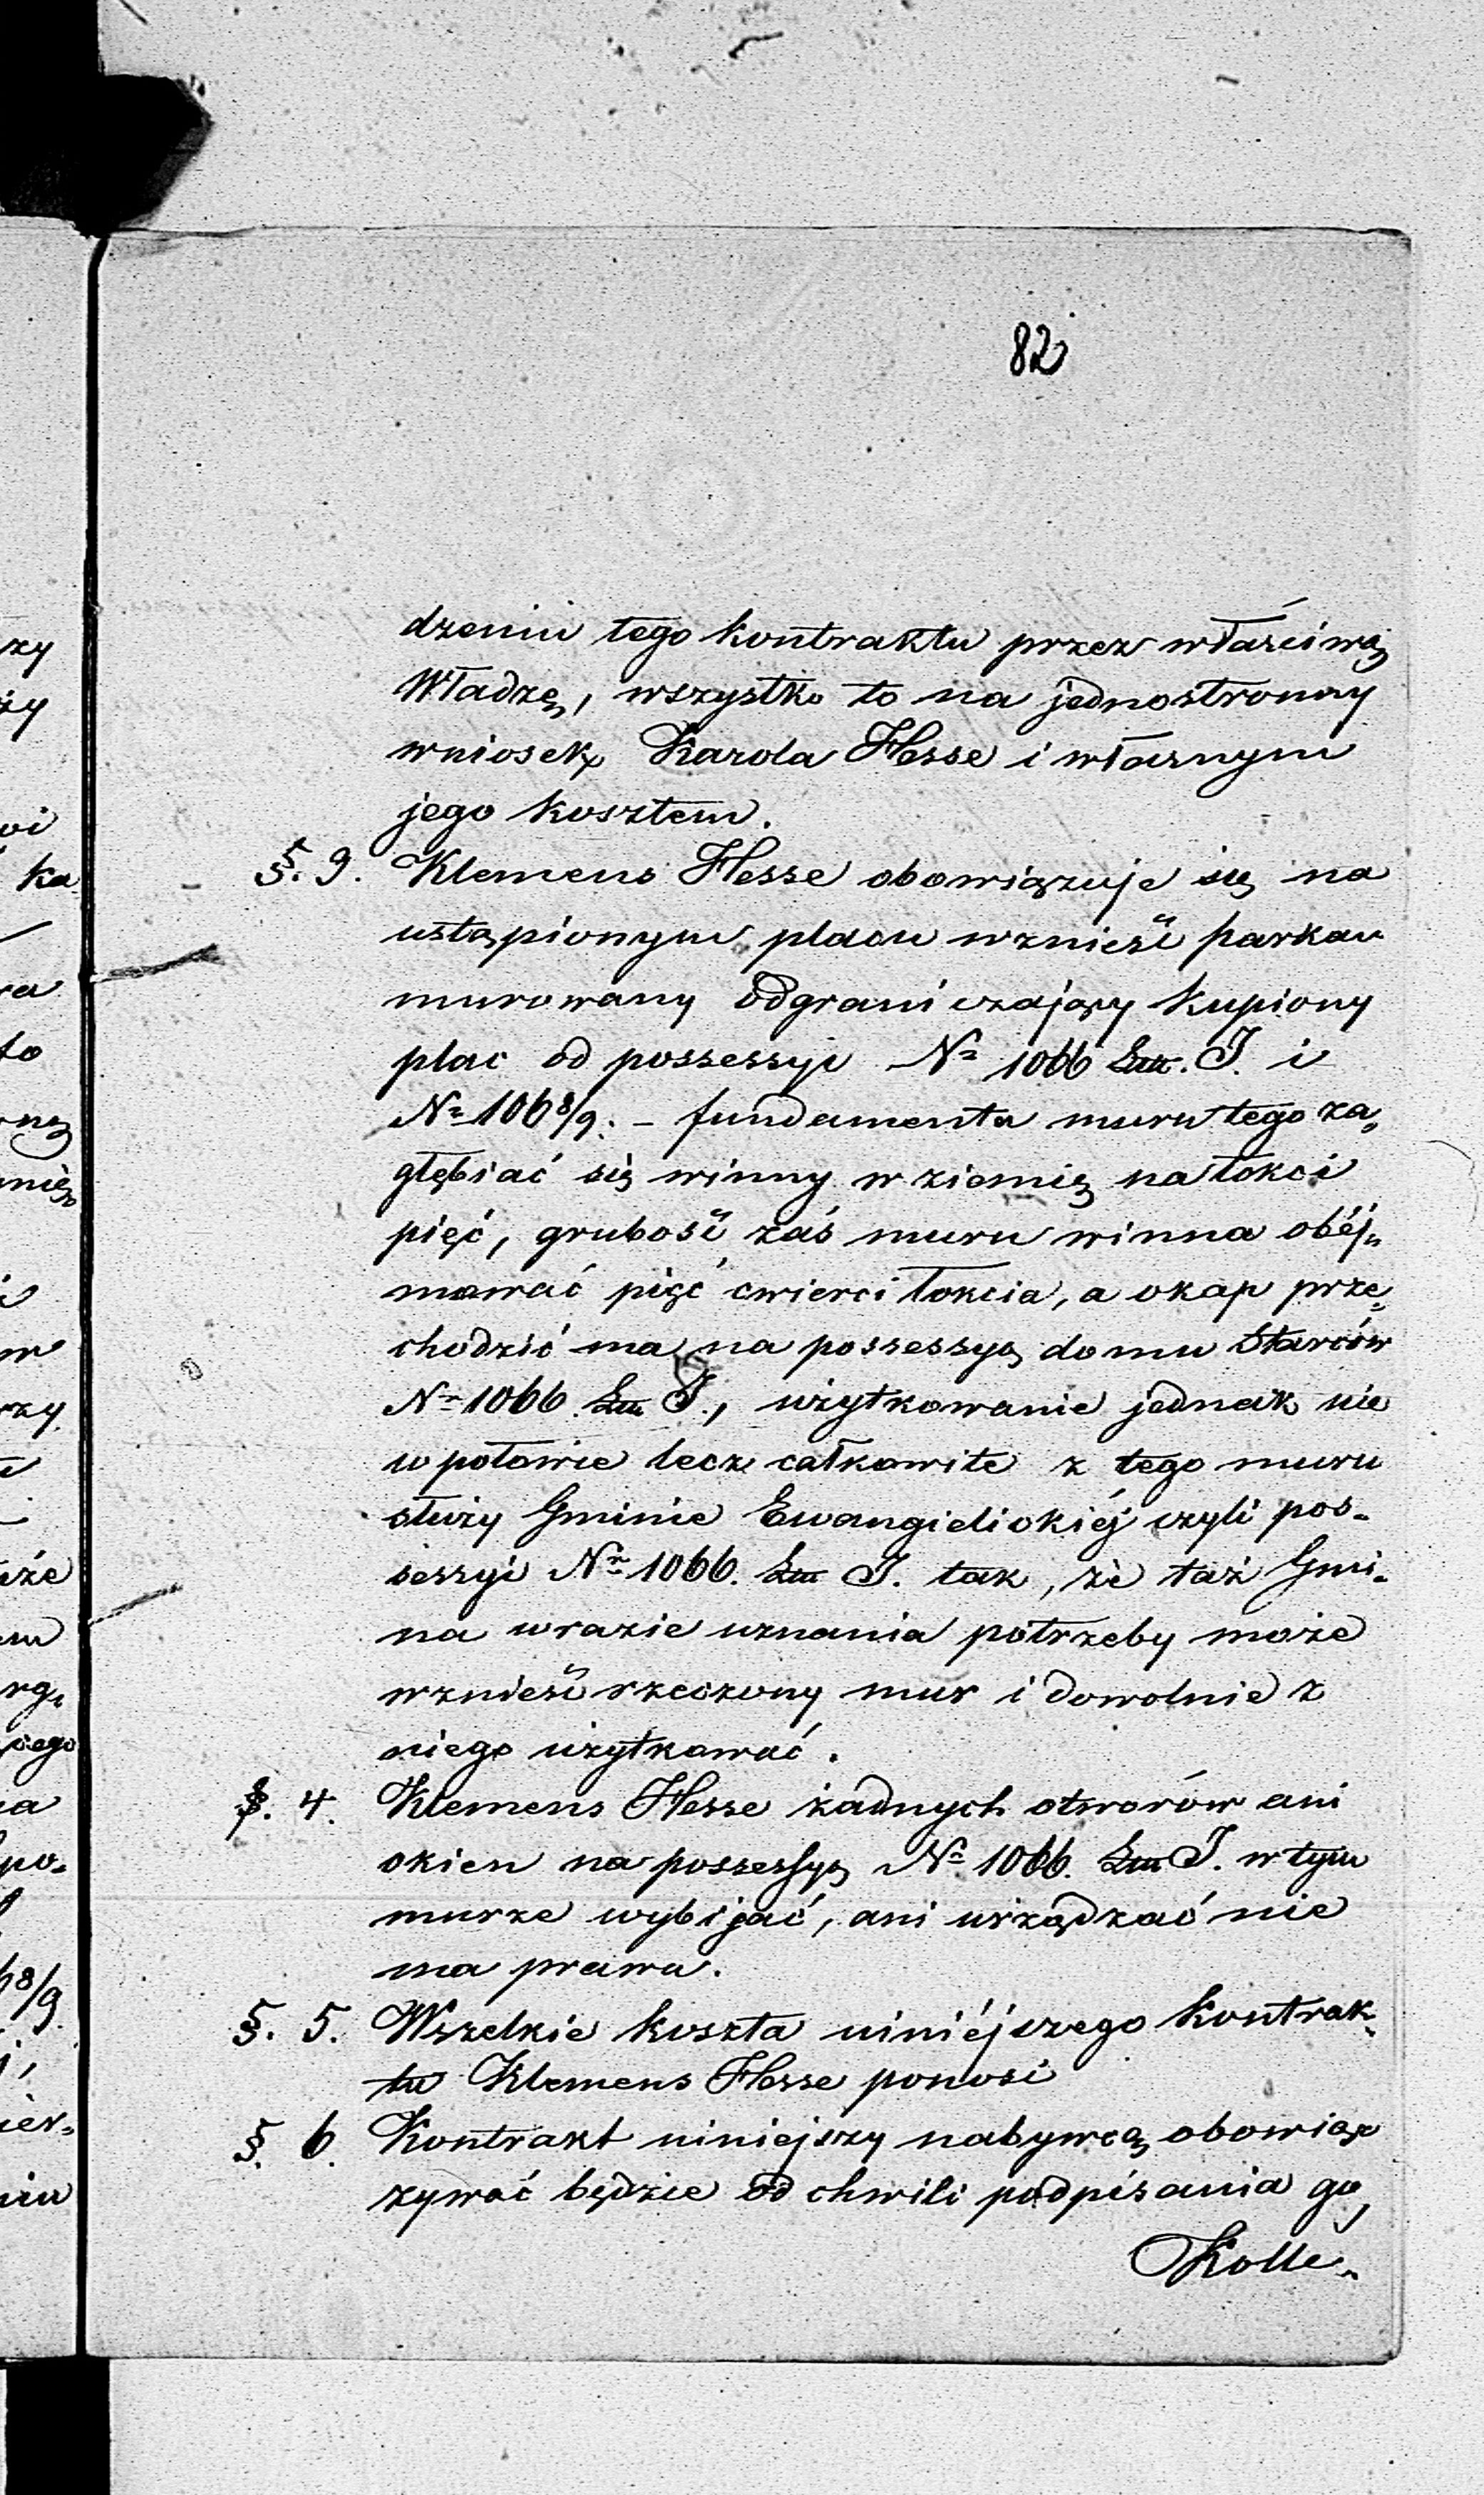 82
dzeniu tego kontraktu przez właściwą
Władzę, wszystko to na jednostronny
wniosek Karola Hesse i własnym
jego kosztem.
§. 3. Klemens Hesse obowiązuje się na
ustąpionym placu wznieść parkan
murowany odgraniczający kupiony
plac od possessyi Nr 1066 Lit. I. i
Nr 1068/9. – fundamenta muru tego za„
głębiać się winny w ziemię na łokci
pięć, grubość zaś muru winna obéj„
mować pięć ćwierci łokcia, a okap prze„
chodzić ma na possessyą domu Starców
Nr 1066. Lit. I., użytkowanie jednak nie
w połowie lecz całkowite z tego muru
służy Gminie Ewangielickiéj czyli pos-
sessyi Nr 1066. Lit. I. tak, że taż Gmi-
na w razie uznania potrzeby może
wznieść rzeczony mur i dowolnie z
niego użytkować.
§. 4. Klemens Hesse żadnych otworów ani
okien na possessyą Nr 1066. Lit. I. w tym
murze wybijać, ani urządzać nie
ma prawa.
§. 5. Wszelkie koszta niniéjszego kontrak„
tu Klemens Hesse ponosi
§. 6. Kontrakt niniejszy nabywcę obowią„
zywać będzie od chwili podpisania go,
Kolle„